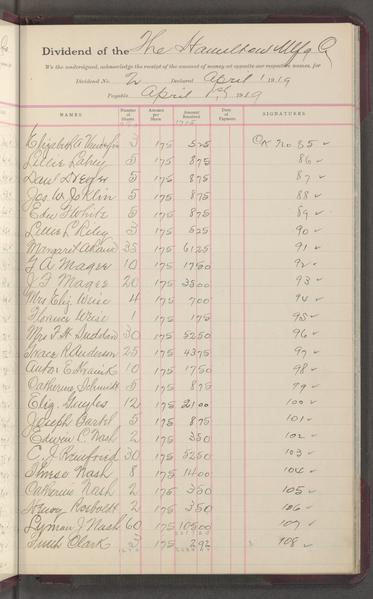 Dividend of the The Hamilton Mfg Co
We the undersigned, acknowledge the receipt of the amount of money set opposite our respective names, for
Dividend No. 2 Declared April 1 1919
Payable April 1st 1919
NAMES Number of Shares Amount per Share Amount Received Date of Payment SIGNATURES
Elizabeth 3 175 525 CK No 85 ✓
Lillie 5 175 875 86 ✓
5 175 875 87 ✓
Jos. W. 5 175 875 88 ✓
Edw G White 5 175 875 89 ✓
Lillie L Riley 3 175 525 90 ✓
Margaret 35 175 6125 91 ✓
F A Magee 10 175 1750 92 ✓
J F Magee 20 175 3500 93 ✓
Mrs Eliz Weise 4 175 700 94 ✓
Florence Weise 1 175 175 95 ✓
Mrs F. H. Suddard 30 175 5250 96 ✓
Grace R Anderson 25 175 4375 97 ✓
Anton E 10 175 1750 98 ✓
Catherine Schmidt 5 175 875 99 ✓
Eliz. 12 175 2100 100 ✓
Joseph Bartel 5 175 875 101 ✓
Edwin C. Nash 2 175 350 102 ✓
C. J. Ransford 30 175 5250 103 ✓
Nash 8 175 1400 104 ✓
Catherine Nash 2 175 350 105 ✓
Henry 2 175 350 106 ✓
Lyman J Nash 60 175 10500 107 ✓
Clark 175 292 108 ✓